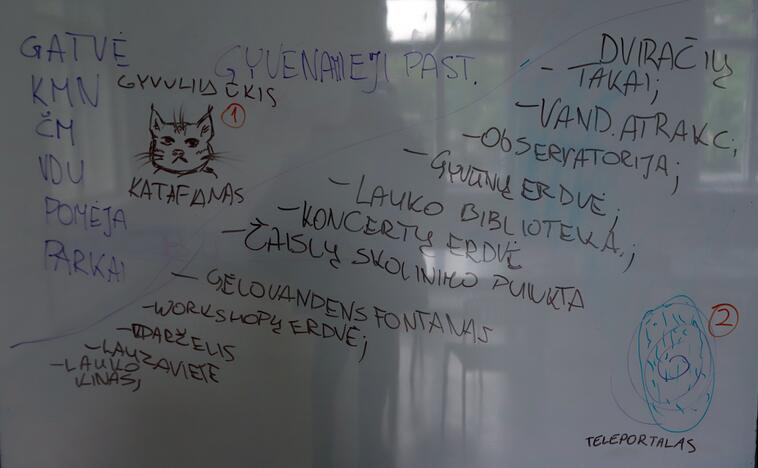 GATVĖ
KMN
ČM
VDU
POMĖJA
PARKAI
GYVENAMIEJI PAST.
GYVULIŲ ŪKIS
1
KATAFANAS
- DVIRAČIŲ
TAKAI;
- VAND. ATRAKC;
- OBSERVATORIJA;
- GYVŪNŲ ERDVĖ;
- LAUKO BIBLIOTEKA.;
- KONCERTŲ ERDVĖ
- ŽAISLŲ SKOLINIMO PUNKTA
- GĖLOVANDENS FONTANAS
- WORKSHOPŲ ERDVĖ;
- DARŽELIS
- LAUŽAVIETĖ
- LAUKO
KINAS;
2
TELEPORTALAS